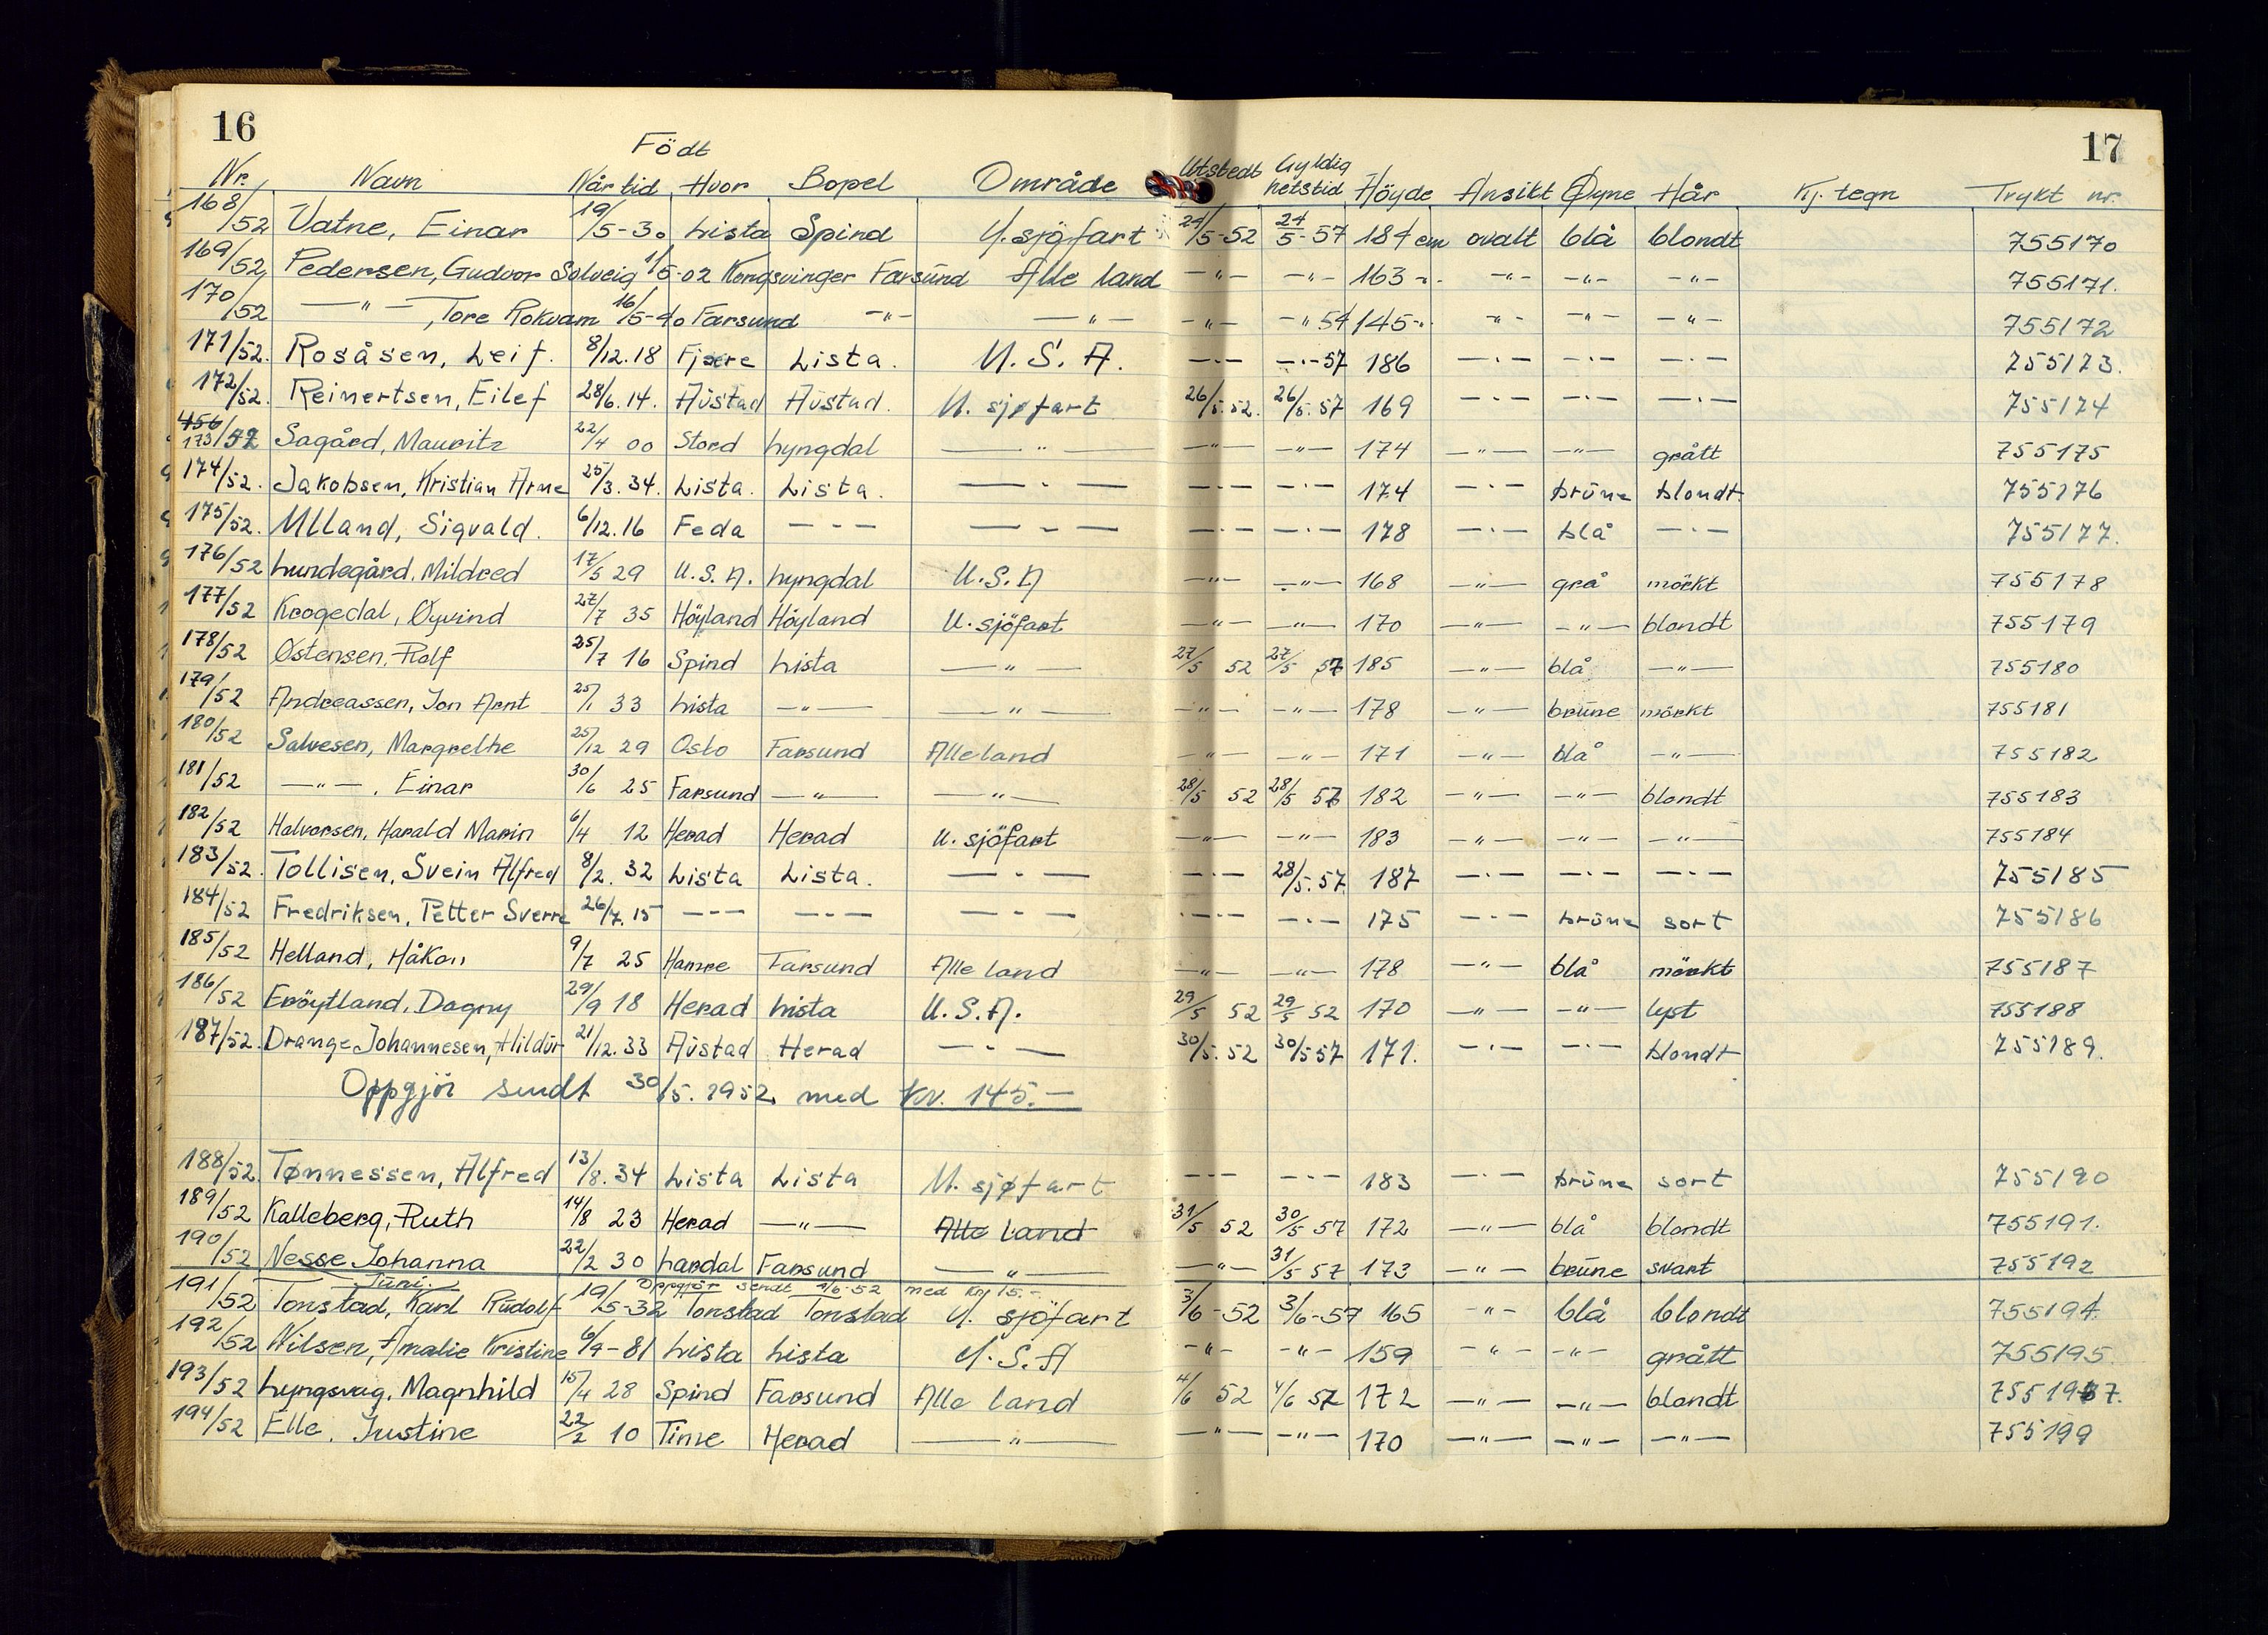 16
17
Födt
Nr. Navn Når tid Hvor Bopel Område Utstedt Gyldighetstid Höyde Ansikt Øyne Hår Kj. tegn Trykt nr.
168/52 Vatne, Einar 19/5-30 Lista Spind U. sjöfart 24/5-52 24/5-57 184 cm ovalt blå blondt 755170
169/52 Pedersen, Gudvor Solveig 1/5-02 Kongsvinger Farsund Alle land -"- -"- 163 -"- -"- -"- -"- 755171.
170/52 -"-, Tore Rokvam 16/5-40 Farsund -"- -"- -"- -"- 54 145 -"- -"- -"- -"- 755172
171/52. Rosåsen, Leif. 8/12.18 Fjære Lista. U. S. A. -"- -"-57 186 -"- -"- -"- 755173.
172/52. Reinertsen, Eilef 28/6.14. Austad Austad. U. sjøfart 26/5.52. 26/5.57 169 -"- -"- -"- 755174
456 173/52 Sagård, Mauritz 22/4 00 Stord Lyngdal -"- -"- -"- 174 -"- -"- grått 755175
174/52. Jakobsen, Kristian Arne 25/3.34. Lista. Lista. -"- -"- -"- 174 -"- brune blondt 755176
175/52. Ulland, Sigvald. 6/12.16 Feda -"- -"- -"- -"- 178 -"- blå -"- 755177.
176/52 Lundegård, Mildred 17/5 29 U.S.A. Lyngdal U.S.A -"- -"- 168 -"- grå mörkt 755178
177/52 Krogedal, Øyvind 27/7 35 Höyland Höyland U. sjöfart -"- -"- 170 -"- -"- blondt 755179
178/52 Østensen, Rolf 25/7 16 Spind Lista -"- 27/5 52 27/5 57 185 -"- blå -"- 755180
179/52 Andreassen, Jon Arnt 25/1 33 Lista -"- -"- -"- -"- 178 -"- brune mörkt 755181
180/52 Salvesen, Margrethe 25/12 29 Oslo Farsund Alle land -"- -"- 171 -"- blå -"- 755182
181/52 -"-, Einar 30/6 25 Farsund -"- -"- 28/5 52 28/5 57 182 -"- -"- blondt 755183
182/52 Halvorsen, Harald Marin 6/4 12 Herad Herad U. sjöfart -"- -"- 183 -"- -"- -"- 755184
183/52. Tollisen, Svein Alfred 8/2. 32 Lista Lista. -"- -"- 28/5.57 187 -"- -"- -"- 755185
184/52 Fredriksen, Petter Sverre 26/7.15 -"- -"- -"- -"- -"- 175 -"- brune sort 755186
185/52 Helland, Håkon 9/7 25 Hamre Farsund Alle land -"- -"- 178 -"- blå mörkt 755187
186/52 Eröytland, Dagny 29/9 18 Herad Lista U.S.A. 29/5 52 29/5 52 170 -"- -"- lyst 755188
187/52. Drange Johannesen, Hildur 21/12.33 Austad Herad -"- 30/5.52 30/5 57 171. -"- -"- blondt 755189.
Oppgjör sendt 30/5. 1952 med kr. 145.-
188/52 Tønnessen, Alfred 13/8.34 Lista Lista U. sjøfart -"- -"- 183 -"- brune sort 755190
189/52 Kalleberg, Ruth 14/8 23 Herad -"- Alle land 31/5 52 30/5 57 172 -"- blå blondt 755191.
190/52 Nesse Johanna 22/2 30 Lardal Farsund -"- -"- 31/5 57 173 -"- brune svart 755192
Juni. Oppgjör sendt 4/6-52 med kr 15.-
191/52 Tonstad, Karl Rudolf 19/5-32 Tonstad Tonstad U. sjöfart 3/6-52 3/6-57 165 -"- blå blondt 755194
192/52 Nilsen, Amalie Kristine 6/9-81 Lista Lista U.S.A -"- -"- 159 -"- -"- grått 755195
193/52 Lyngsvag, Magnhild 15/4 28 Spind Farsund Alle land 4/6 52 4/6 57 172 -"- -"- blondt 755197.
194/52 Elle, Justine 22/2 10 Time Herad -"- -"- -"- 170 -"- -"- -"- 755199